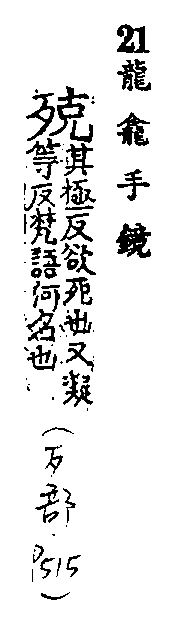 21龍龕手鏡
殑其極反欲死也又凝
等反梵語何名也
(歹部 P515)